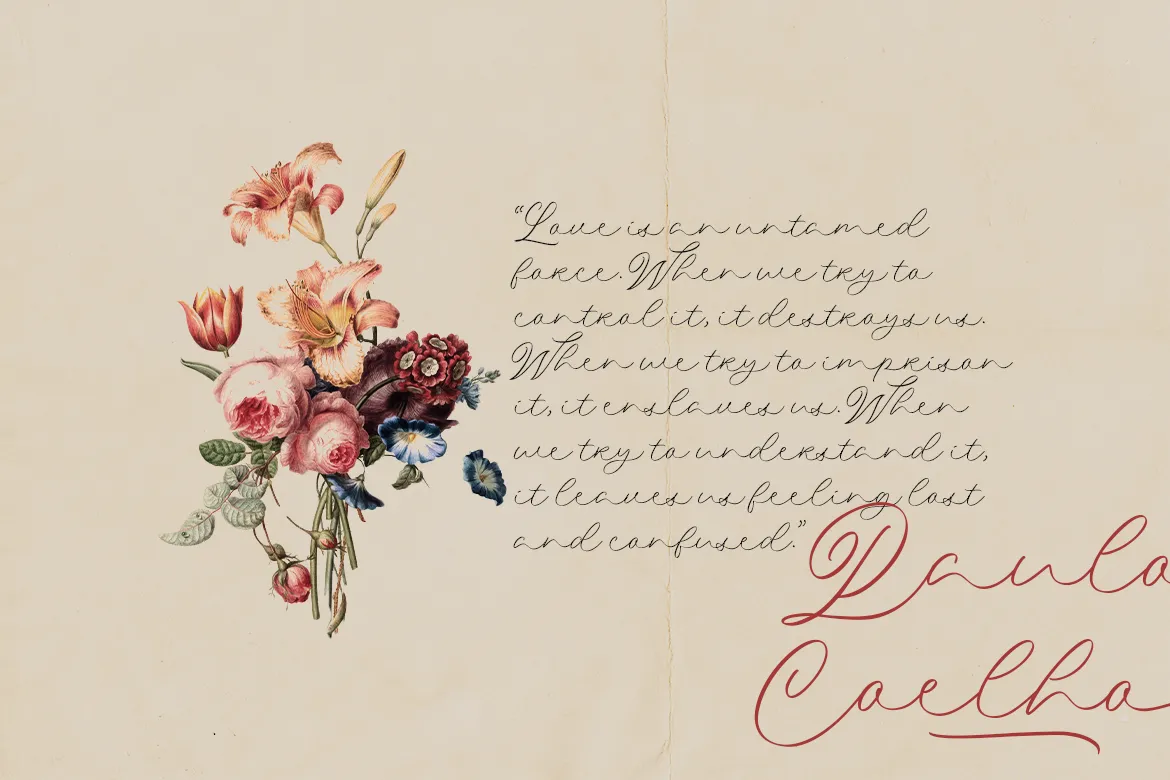 “Love is an untamed
force. When we try to
control it, it destroys us.
When we try to imprison
it, it enslaves us. When
we try to understand it,
it leaves us feeling lost
and confused.”
Paulo
Coelho